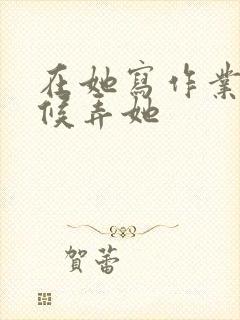 在她寫作業
候弄她
賀蕾